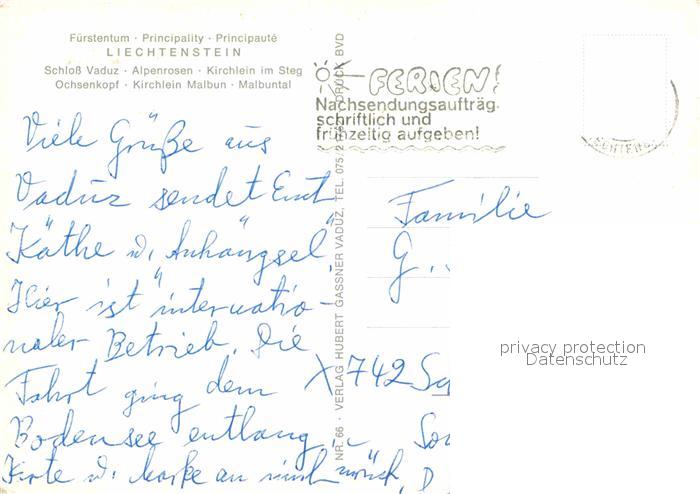 Fürstentum · Principality · Principauté
LIECHTENSTEIN
Schloß Vaduz · Alpenrosen · Kirchlein im Steg
Ochsenkopf · Kirchlein Malbun · Malbuntal
FERIEN!
Nachsendungsaufträg.
schriftlich und
frühzeitig aufgeben!
Viele Grüße aus
Vaduz sendet Euch
Käthe u. "Anhängsel"
Hier ist internatio-
naler Betrieb. Die
Fahrt ging dem
Bodensee entlang.
Karte u. Marke an mich zurück.
NR. 66 · VERLAG HUBERT GASSNER VADUZ, TEL. 075/2 DRUCK BVD
Familie
G...
X 742
D
privacy protection
Datenschutz